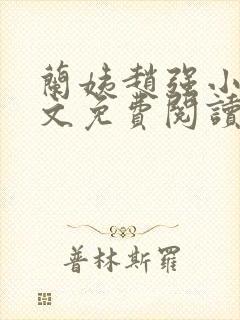 蘭姨趙强小
文免費閱讀
普林斯羅